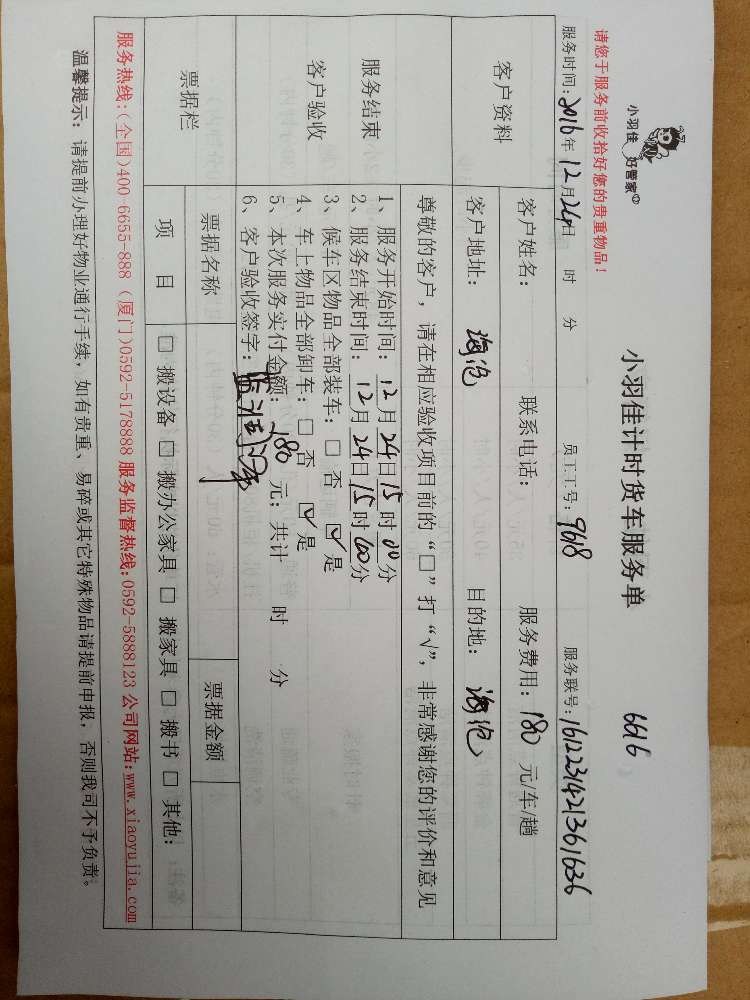 小羽佳 好管家
小羽佳计时货车服务单 6616
请您于服务前收拾好您的贵重物品！
服务时间：2016年12月24日 时 分 员工工号：9618 服务联号：1612231421361636
客户资料
客户姓名： 联系电话： 服务费用：180 元/车/趟
客户地址：海沧 目的地：海沧
服务结束
客户验收
尊敬的客户，请在相应验收项目前的“□”打“√”，非常感谢您的评价和意见
1、服务开始时间：12月24日15时00分
2、服务结束时间：12月24日15时60分
3、候车区物品全部装车：□ 否 ☑ 是
4、车上物品全部卸车：□ 否 ☑ 是
5、本次服务实付金额：180 元；共计 时 分
6、客户验收签字：
票据栏
票据名称 票据金额
项 目 □ 搬设备 □ 搬办公家具 □ 搬家具 □ 搬书 □ 其他：
服务热线：(全国)400-6655-888 (厦门)0592-5178888 服务监督热线：0592-5888123 公司网站：www.xiaoyujia.com
温馨提示：请提前办理好物业通行手续，如有贵重、易碎或其它特殊物品请提前申报，否则我司不予负责。